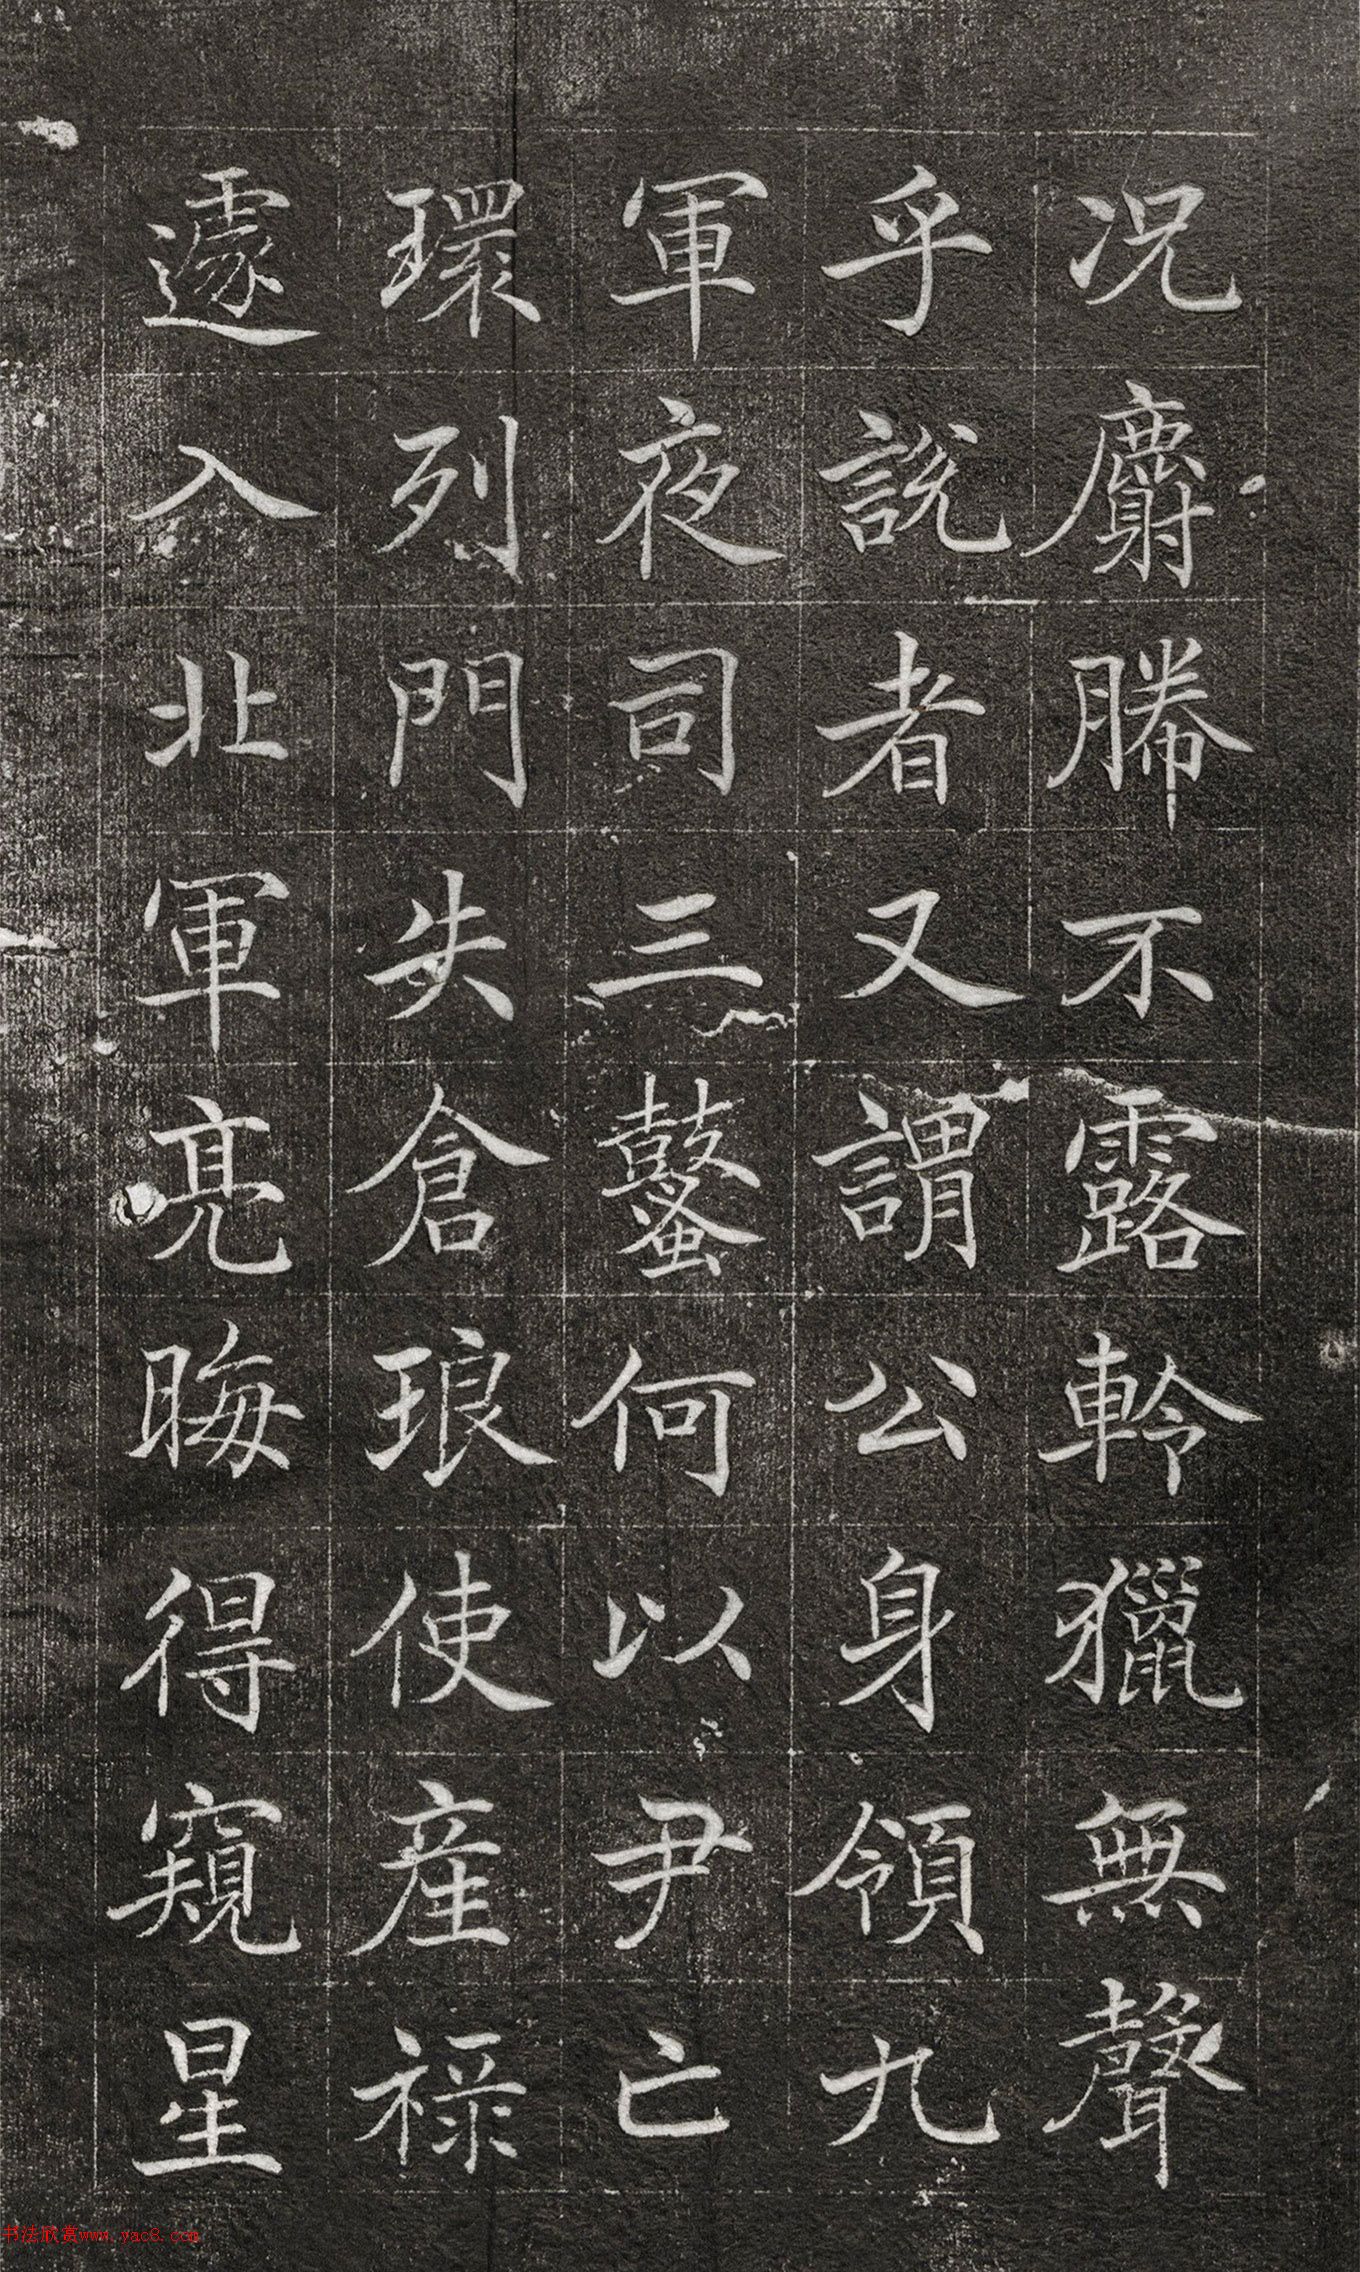 況麝縢不露軨獵無聲
乎說者又謂公身領九
軍夜司三鼜何以尹亡
環列門失倉琅使産祿
遽入北軍亮晦得窺星
书法欣赏www.yac8.com